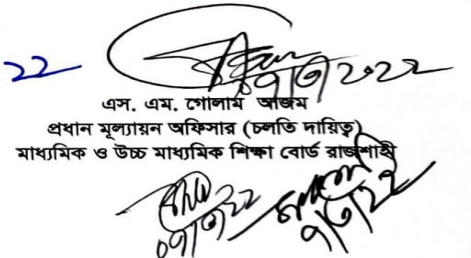 ২২
০৭/৩/২০২২
এস. এম. গোলাম আজম
প্রধান মূল্যায়ন অফিসার (চলতি দায়িত্ব)
মাধ্যমিক ও উচ্চ মাধ্যমিক শিক্ষা বোর্ড রাজশাহী
০৭/৩/২২
৭/৩/২২